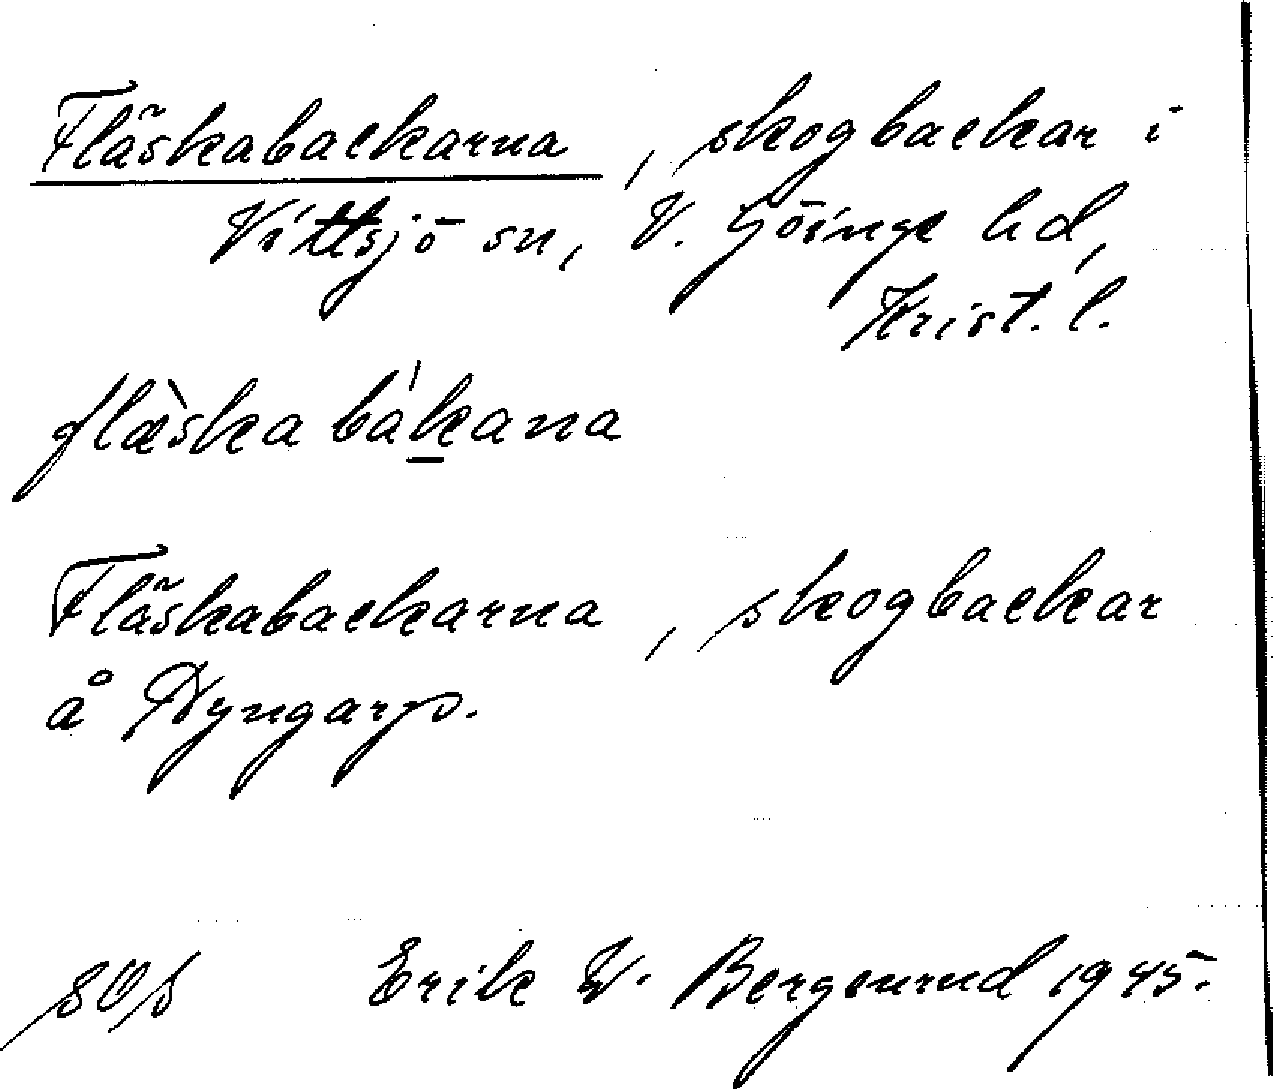 Fläskabackarna, skogbackar i
Vittsjö sn, V. Göinge hd,
Krist. l.
flæ̀ska bákana
Fläskabackarna, skogbackar
å Nyngarp.
Erik W. Bergenrud 1945.